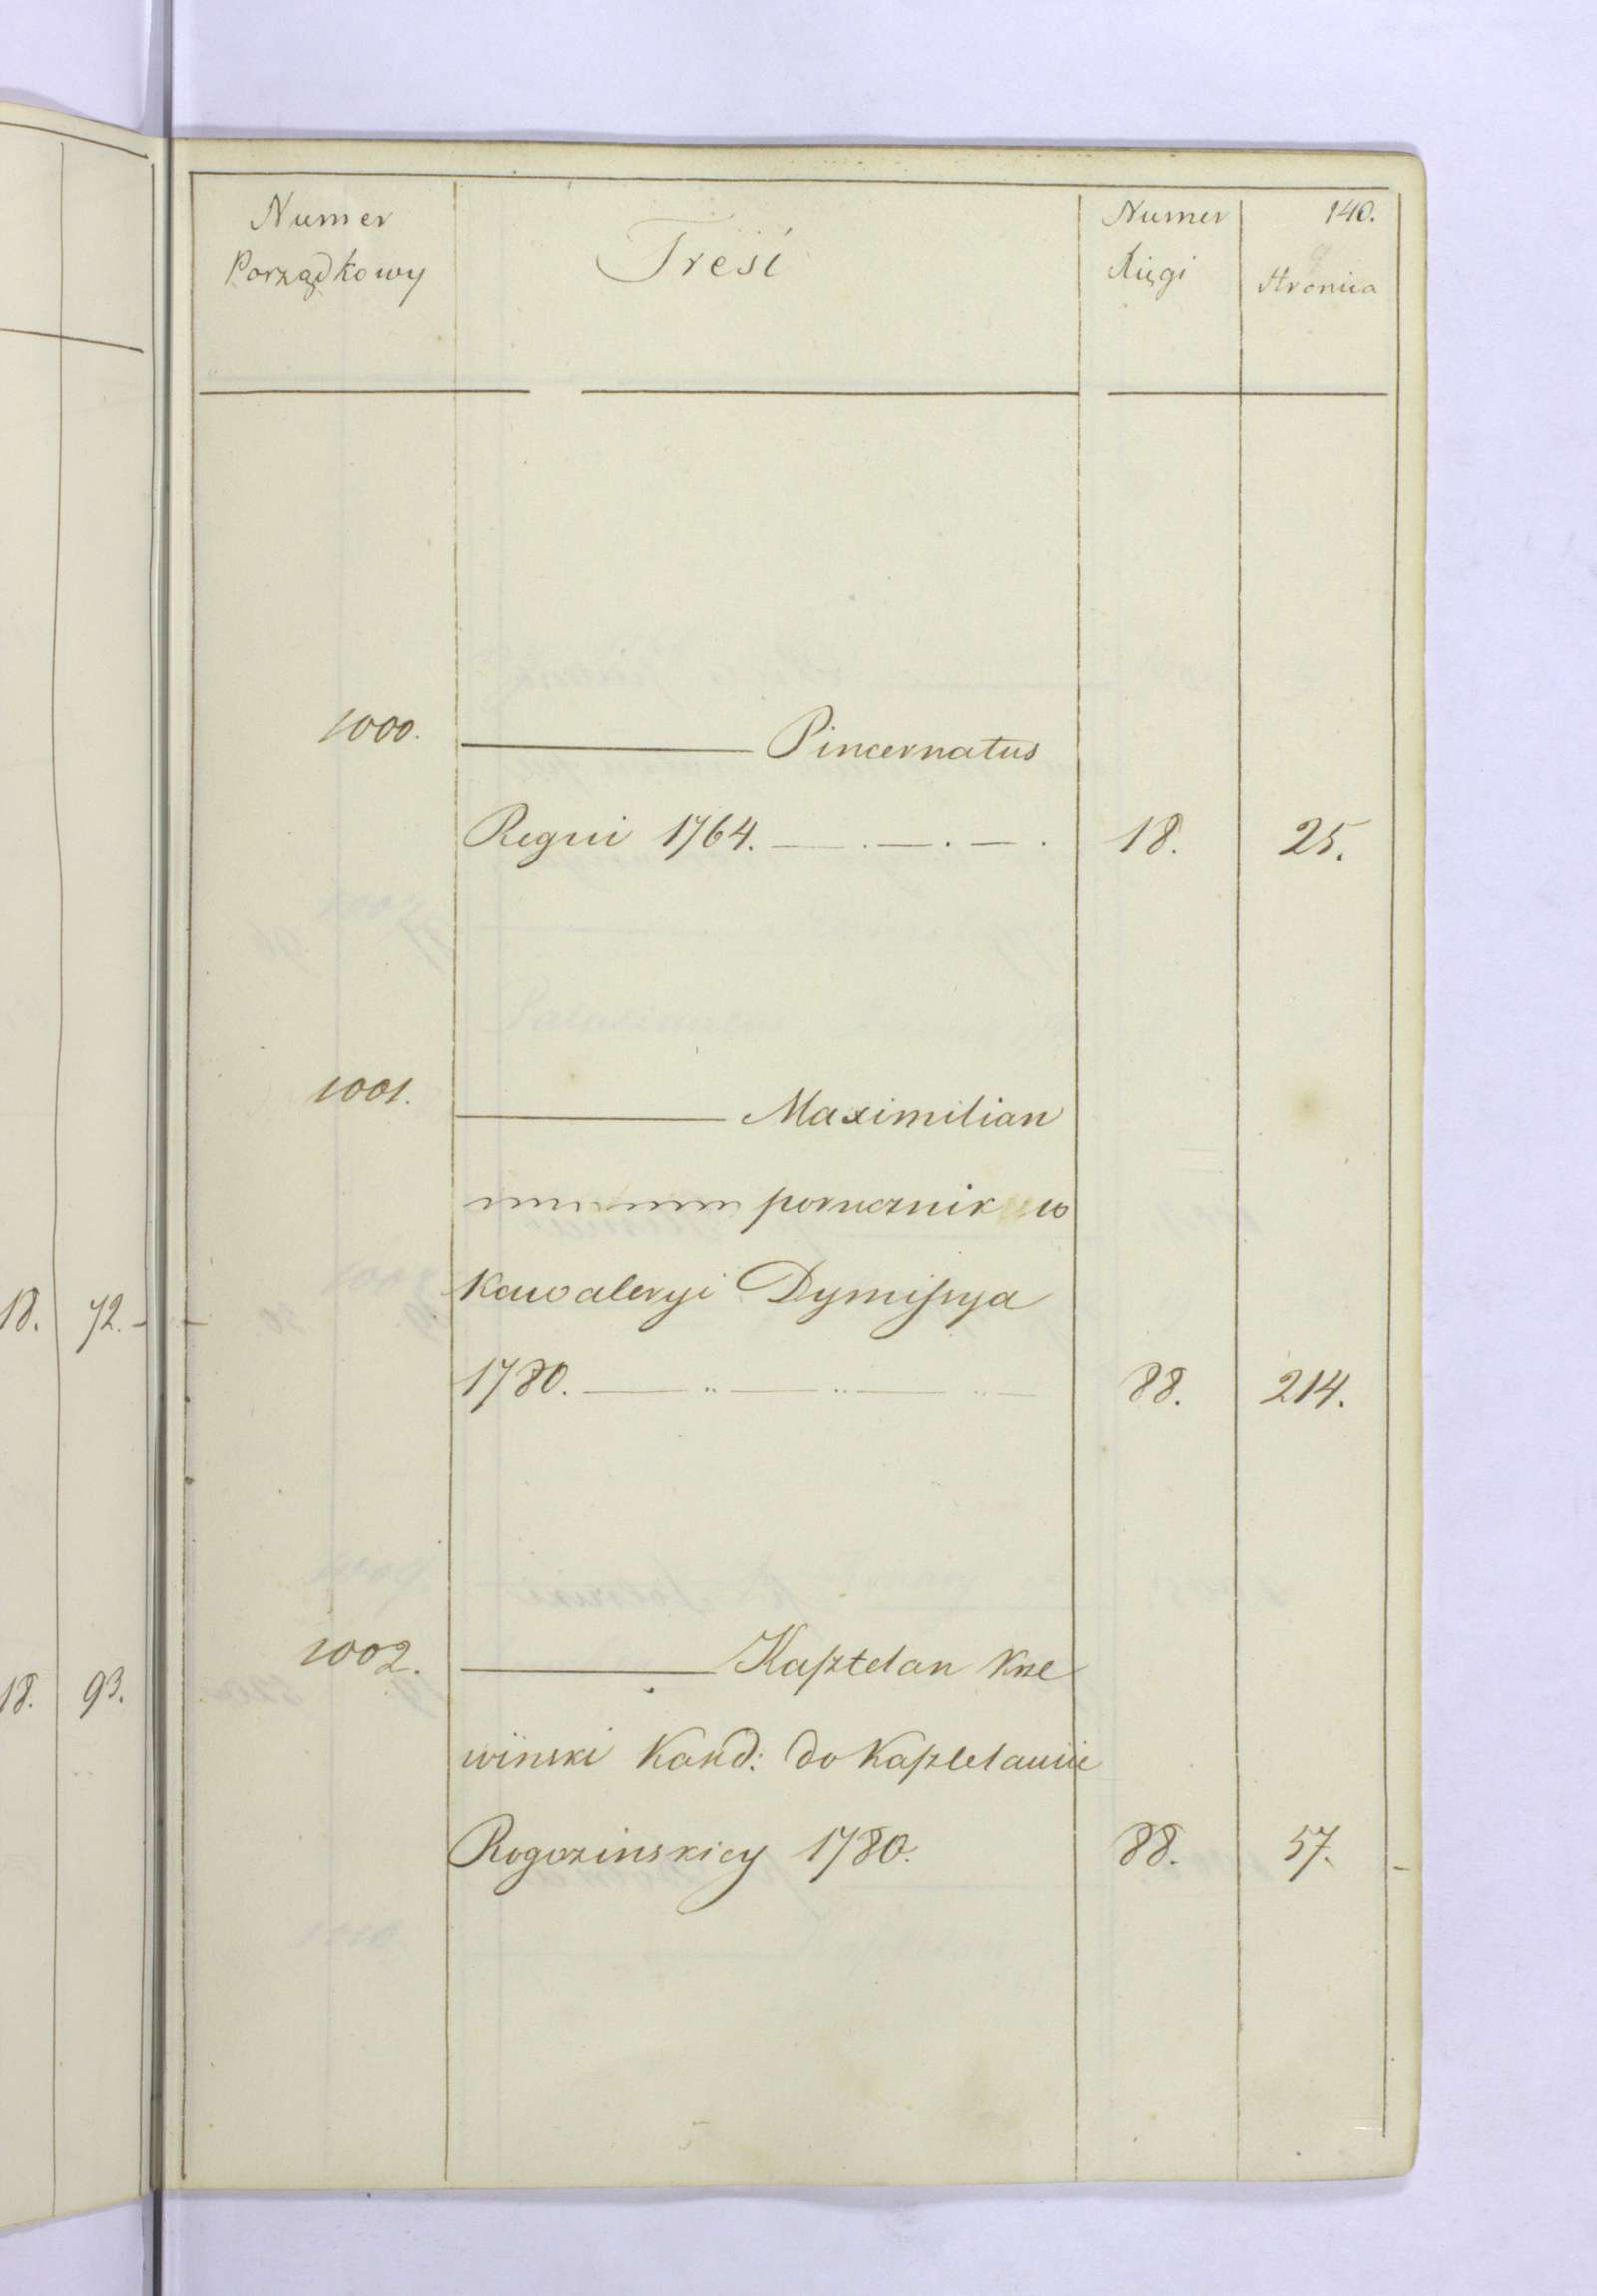 140.
Numer Porządkowy
Treść
Numer Księgi
Stronica
1000. ——— Pincernatus
Regni 1764. — . — . — . 18. 25.
1001. ——— Maximilian
porucznik w
Kawaleryi Dymißya
1780. — .. — .. — .. — 88. 214.
18. 72.
1002. ——— Kasztelan Krze
wiński Kand: do Kasztelanii
18. 93.
Rogozinskiey 1780. 88. 57.